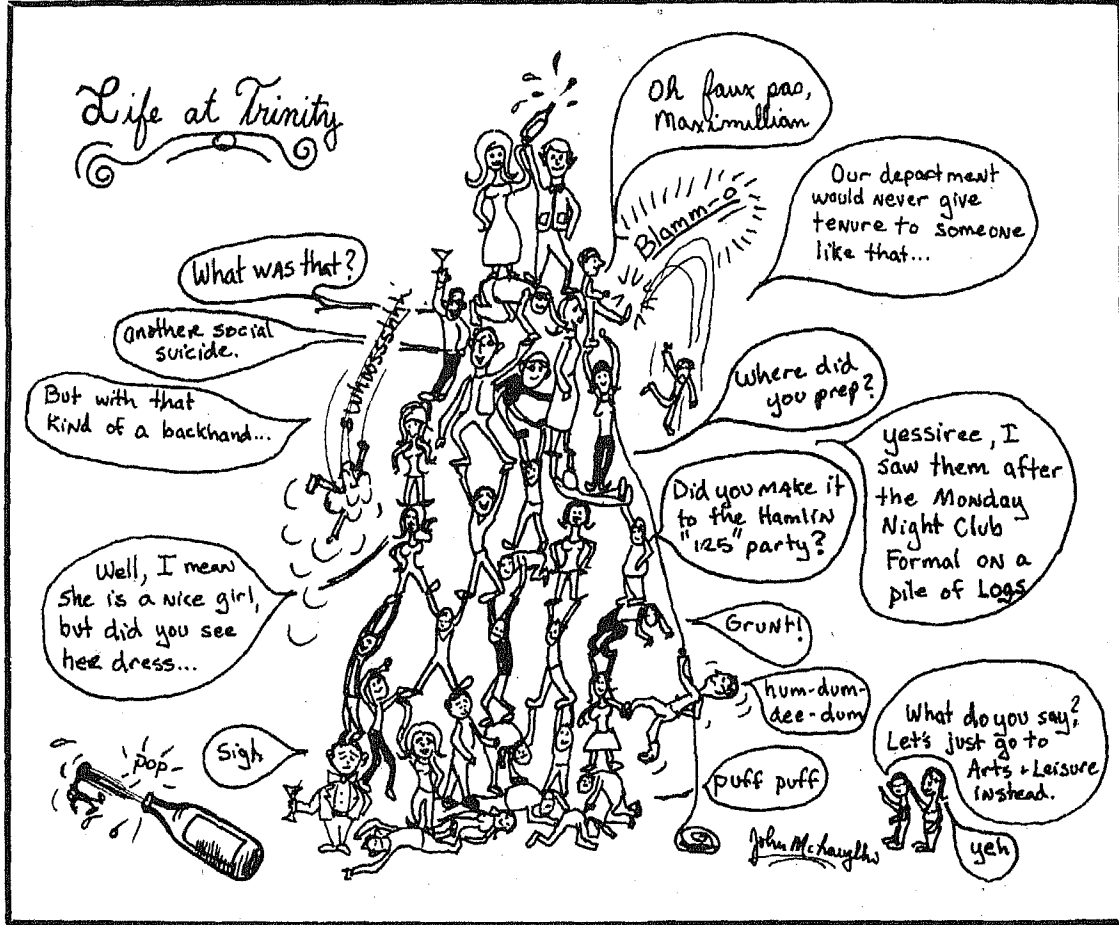 Life at Trinity
Oh faux pas,
Maximillian
Blamm-o
Our department
would never give
tenure to someone
like that...
What was that?
another social
suicide.
Whoossshh
But with that
kind of a backhand...
Where did
you prep?
yessiree, I
saw them after
the Monday
Night Club
Formal on a
pile of Logs
Did you make it
to the Hamlin
"125" party?
Well, I mean
she is a nice girl,
but did you see
her dress...
Grunt!
hum-dum-
dee-dum
What do you say?
Let's just go to
Arts + Leisure
instead.
yeh
Sigh
pop
puff puff
John McLaughlin